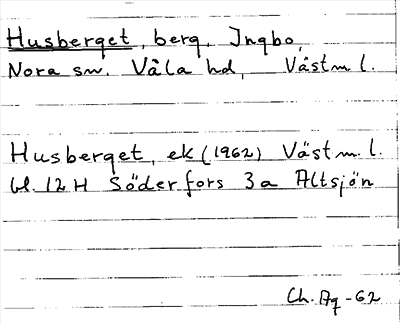 Husberget, berg, Ingbo,
Nora sn. Våla hd, Västm l.
Husberget, ek (1962) Västm. l.
bl. 12 H Söderfors 3 a Altsjön
Ch. Ag -62